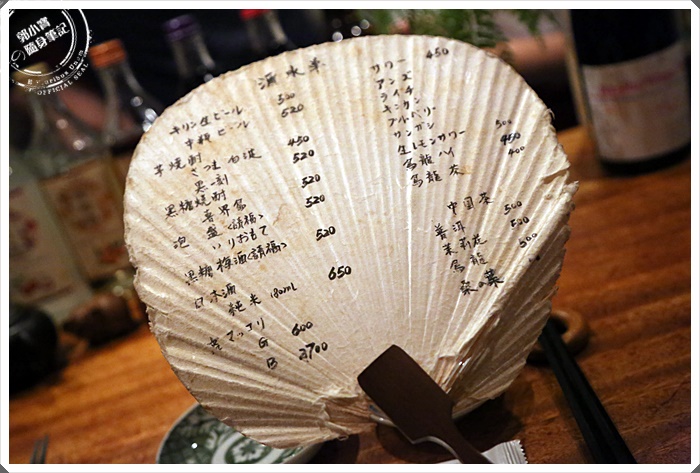 郭小寶
隨身筆記
OFFICIAL SEAL
酒水單
キリン生ビール 500
中瓶ビール 520
芋焼酎
さつま白波 450
黒一刻 520
黒糖焼酎
喜界島 520
泡盛〈請福〉 520
いりおもて
黒糖梅酒〈請福〉 520
日本酒
純米 180ML 650
マッコリ
G 600
B 2700
サワー 450
アンズ
ライチ
キンカン
ブルーベリー
サンザシ
生レモンサワー 500
烏龍ハイ 450
烏龍茶 400
中国茶
普洱 500
茉莉花 520
烏龍 500
桑の葉